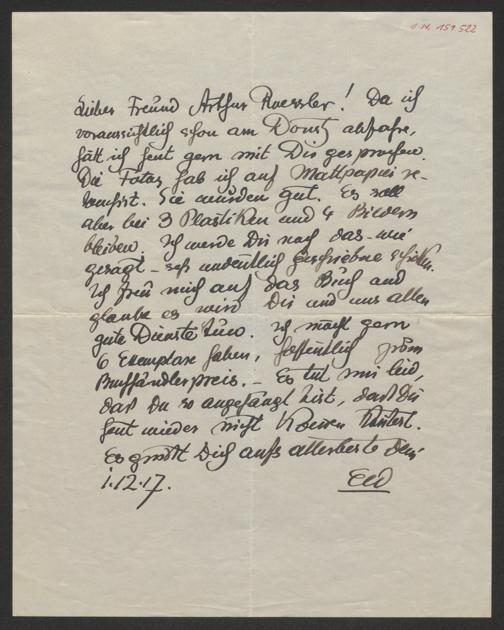 I.N. 159.522
Lieber Freund Arthur Roessler! Da ich
voraussichtlich schon am Donst abfahre,
hätt ich heut gern mit Dir gesprochen.
Die Fotos hab ich auf Mattpapier re-
tuschirt. Sie wurden gut. Es soll
aber bei 3 Plastiken und 4 Bildern
bleiben. Ich werde Dir noch das - wie
gesagt - sehr undeutlich geschriebne schicken.
Ich freu mich auf das Buch und
glaube es wird Dir und uns allen
gute Dienste tun. Ich möcht gern
6 Exemplare haben, hoffentlich zum
Buchhändlerpreis. - Es tut mir leid,
dass Du so angehängt bist, dass Du
heut wieder nicht kommen konntest.
Es grüsst Dich aufs allerbeste Dein
1.12.17.